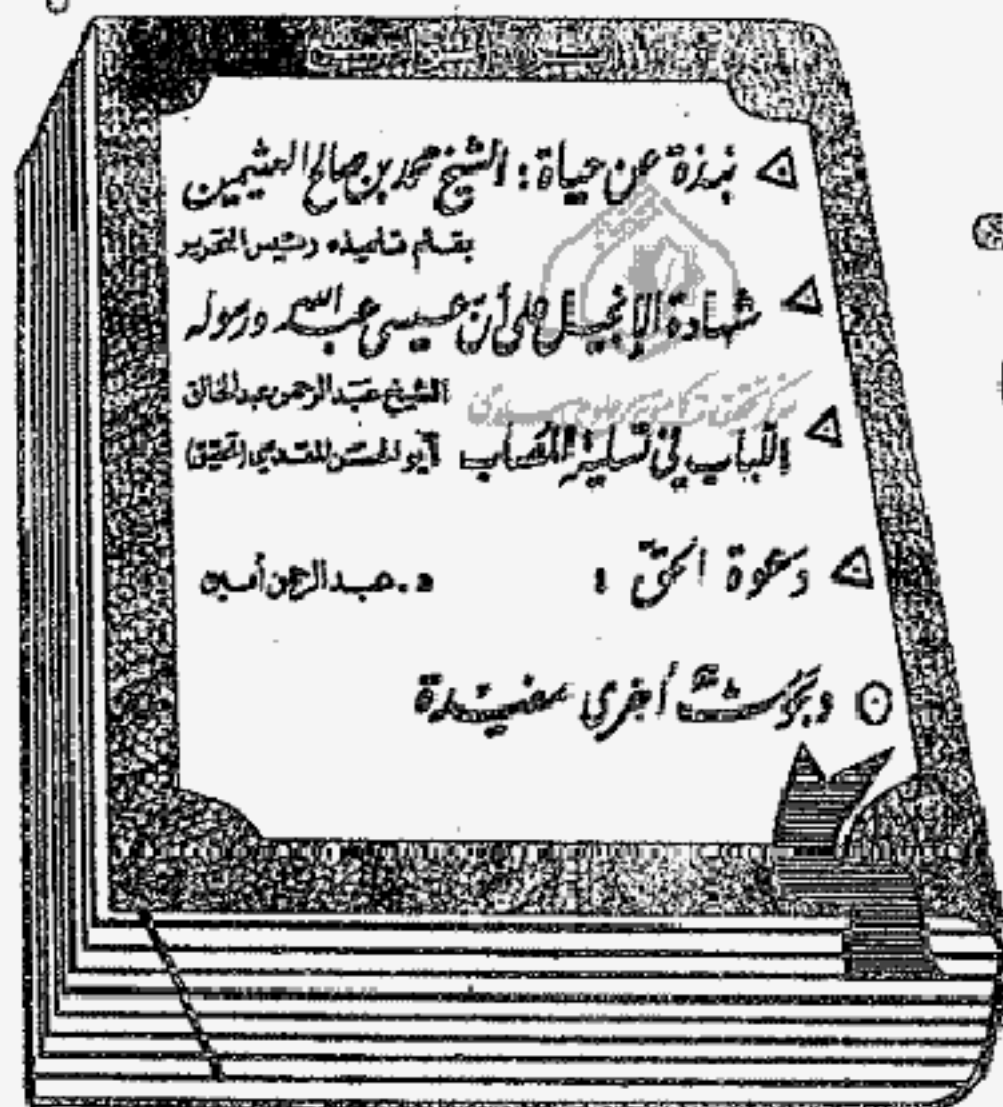 نبذة عن حياة: الشيخ محمد بن صالح العثيمين
بقلم تلميذه رئيس التحرير
شهادة الإنجيل على أن عيسى عبد الله ورسوله
الشيخ عبد الرحمن عبد الخالق
اللباب في تسلية المصاب أبو الحسن المقدسي (تحقيق)
دعوة الحق: د. عبد الرحمن أمين
وبحوث أخرى مفيدة